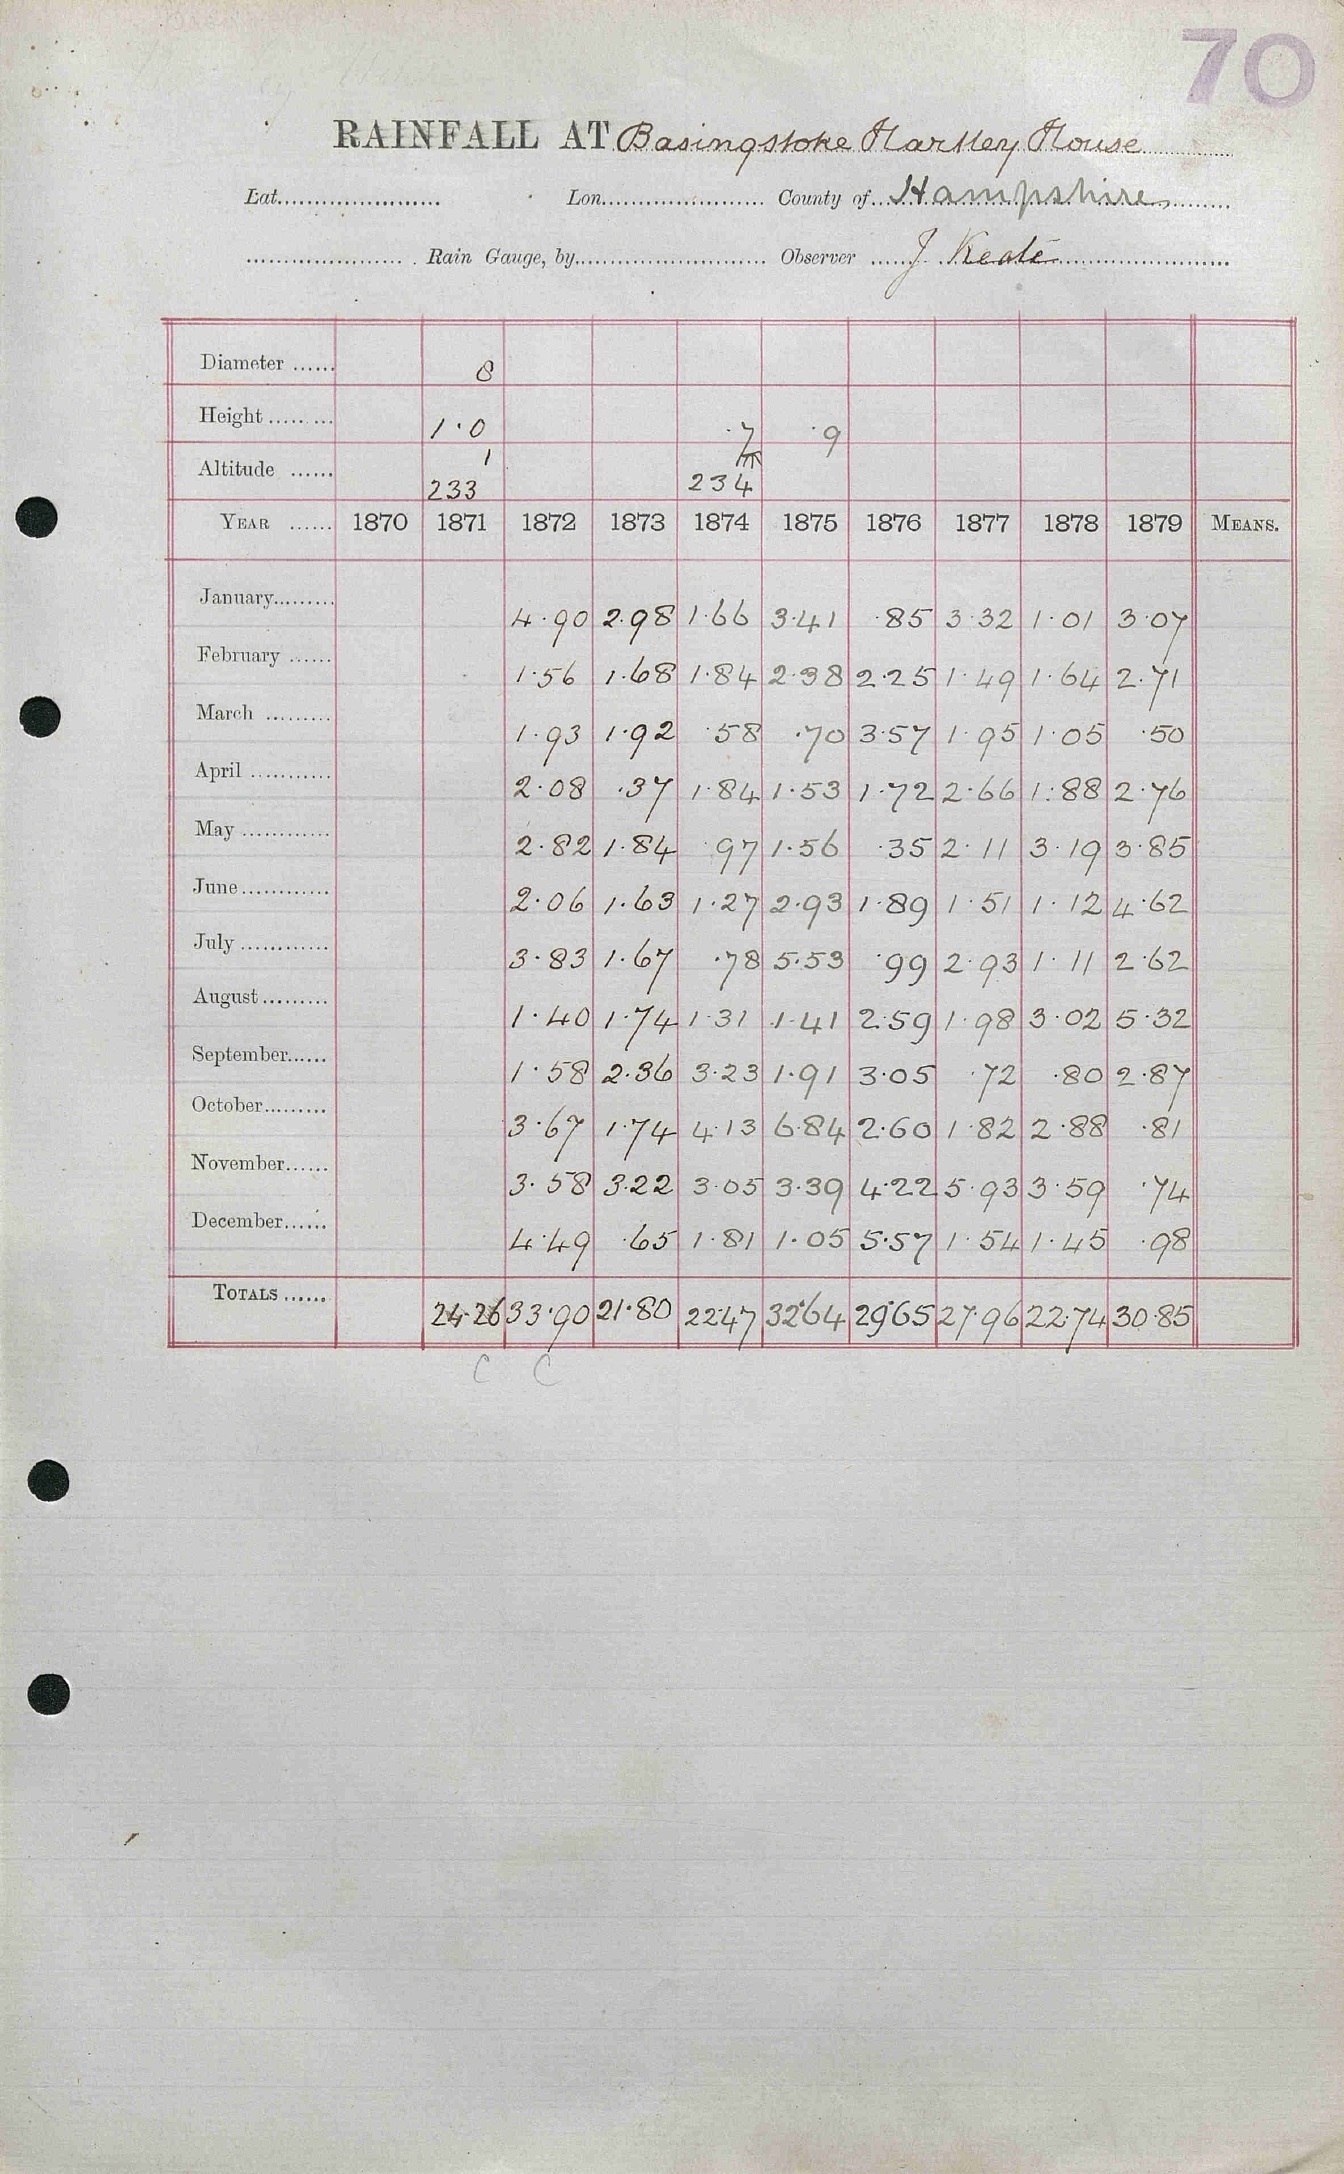 70
RAINFALL AT Basingstoke Hartley House
Lat. Lon. County of Hampshire
Rain Gauge, by Observer J Keate
Diameter 8
Height 1·0 ·7 ·9
Altitude 233 234
YEAR 1870 1871 1872 1873 1874 1875 1876 1877 1878 1879 MEANS.
January 4·90 2·98 1·66 3·41 ·85 3·32 1·01 3·07
February 1·56 1·68 1·84 2·38 2·25 1·49 1·64 2·71
March 1·93 1·92 ·58 ·70 3·57 1·95 1·05 ·50
April 2·08 ·37 1·84 1·53 1·72 2·66 1·88 2·76
May 2·82 1·84 ·97 1·56 ·35 2·11 3·19 3·85
June 2·06 1·63 1·27 2·93 1·89 1·51 1·12 4·62
July 3·83 1·67 ·78 5·53 ·99 2·93 1·11 2·62
August 1·40 1·74 1·31 1·41 2·59 1·98 3·02 5·32
September 1·58 2·36 3·23 1·91 3·05 ·72 ·80 2·87
October 3·67 1·74 4·13 6·84 2·60 1·82 2·88 ·81
November 3·58 3·22 3·05 3·39 4·22 5·93 3·59 ·74
December 4·49 ·65 1·81 1·05 5·57 1·54 1·45 ·98
TOTALS 24·26 33·90 21·80 22·47 32·64 29·65 27·96 22·74 30·85
C C